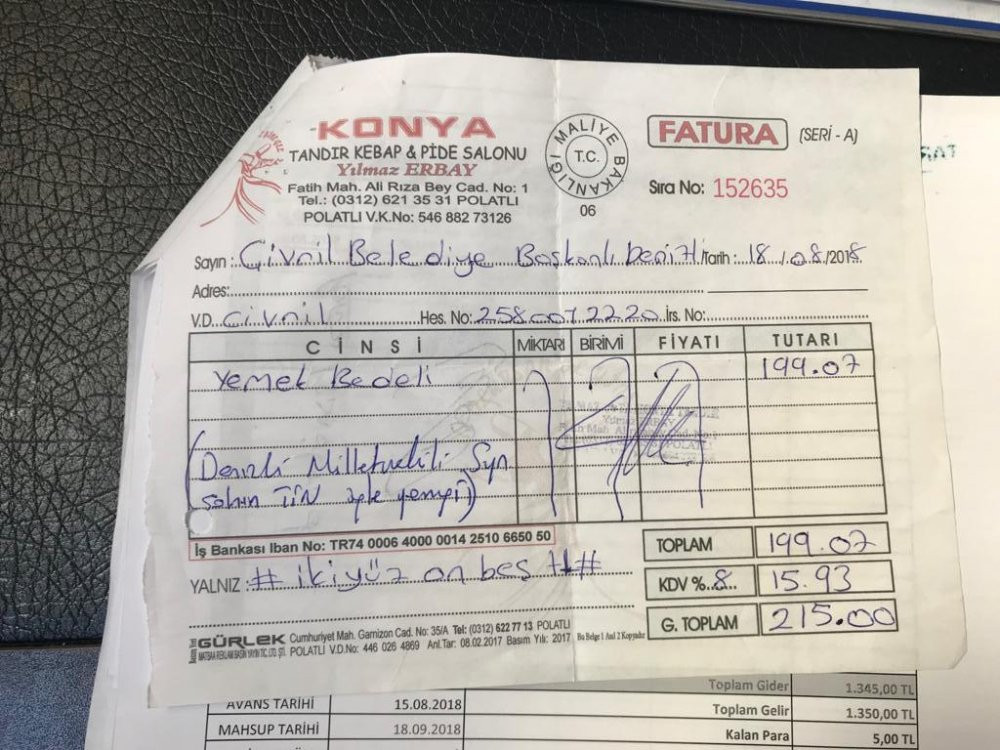 KONYA
TANDIR KEBAP & PİDE SALONU
Yılmaz ERBAY
Fatih Mah. Ali Rıza Bey Cad. No: 1
Tel.: (0312) 621 35 31 POLATLI
POLATLI V.K.No: 546 882 73126
MALİYE BAKANLIĞI
T.C.
06
FATURA (SERİ - A)
Sıra No: 152635
Sayın : Çivril Belediye Başkanlı Denizli Tarih : 18/08/2018
Adres:
V.D. Civril Hes. No: 2580072220 İrs. No:
CİNSİ MİKTARI BİRİMİ FİYATI TUTARI
Yemek Bedeli 199.07
(Denizli Milletvekili Syn
Şahin TİN öyle yemeği)
İş Bankası Iban No: TR74 0006 4000 0014 2510 6650 50
TOPLAM 199.07
YALNIZ : # ikiyüz on beş tl #
KDV %.8. 15.93
G. TOPLAM 215.00
GÜRLEK Cumhuriyet Mah. Garnizon Cad. No: 35/A Tel: (0312) 622 77 13 POLATLI
MATBAA REKLAM BASIN YAYIN TİC. LTD. ŞTİ. POLATLI V.D.No: 446 026 4869 Anl.Tar: 08.02.2017 Basım Yılı: 2017 Bu Belge 1 Asıl 2 Kopyadır
Toplam Gider 1.345,00 TL
AVANS TARİHİ 15.08.2018 Toplam Gelir 1.350,00 TL
MAHSUP TARİHİ 18.09.2018 Kalan Para 5,00 TL